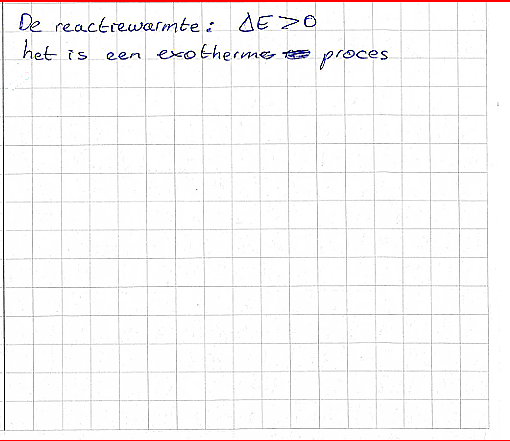 De reactiewarmte: ΔE > 0
het is een exotherme proces